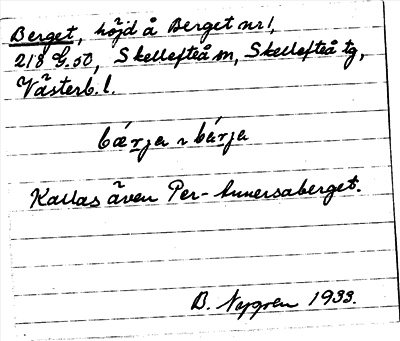 Berget, höjd å Berget nr 1,
218 G.50, Skellefteå sn, Skellefteå tg,
Västerb. l.
bærja ~ bárja
Kallas även Per-Annersaberget.
B. Nygren 1933.